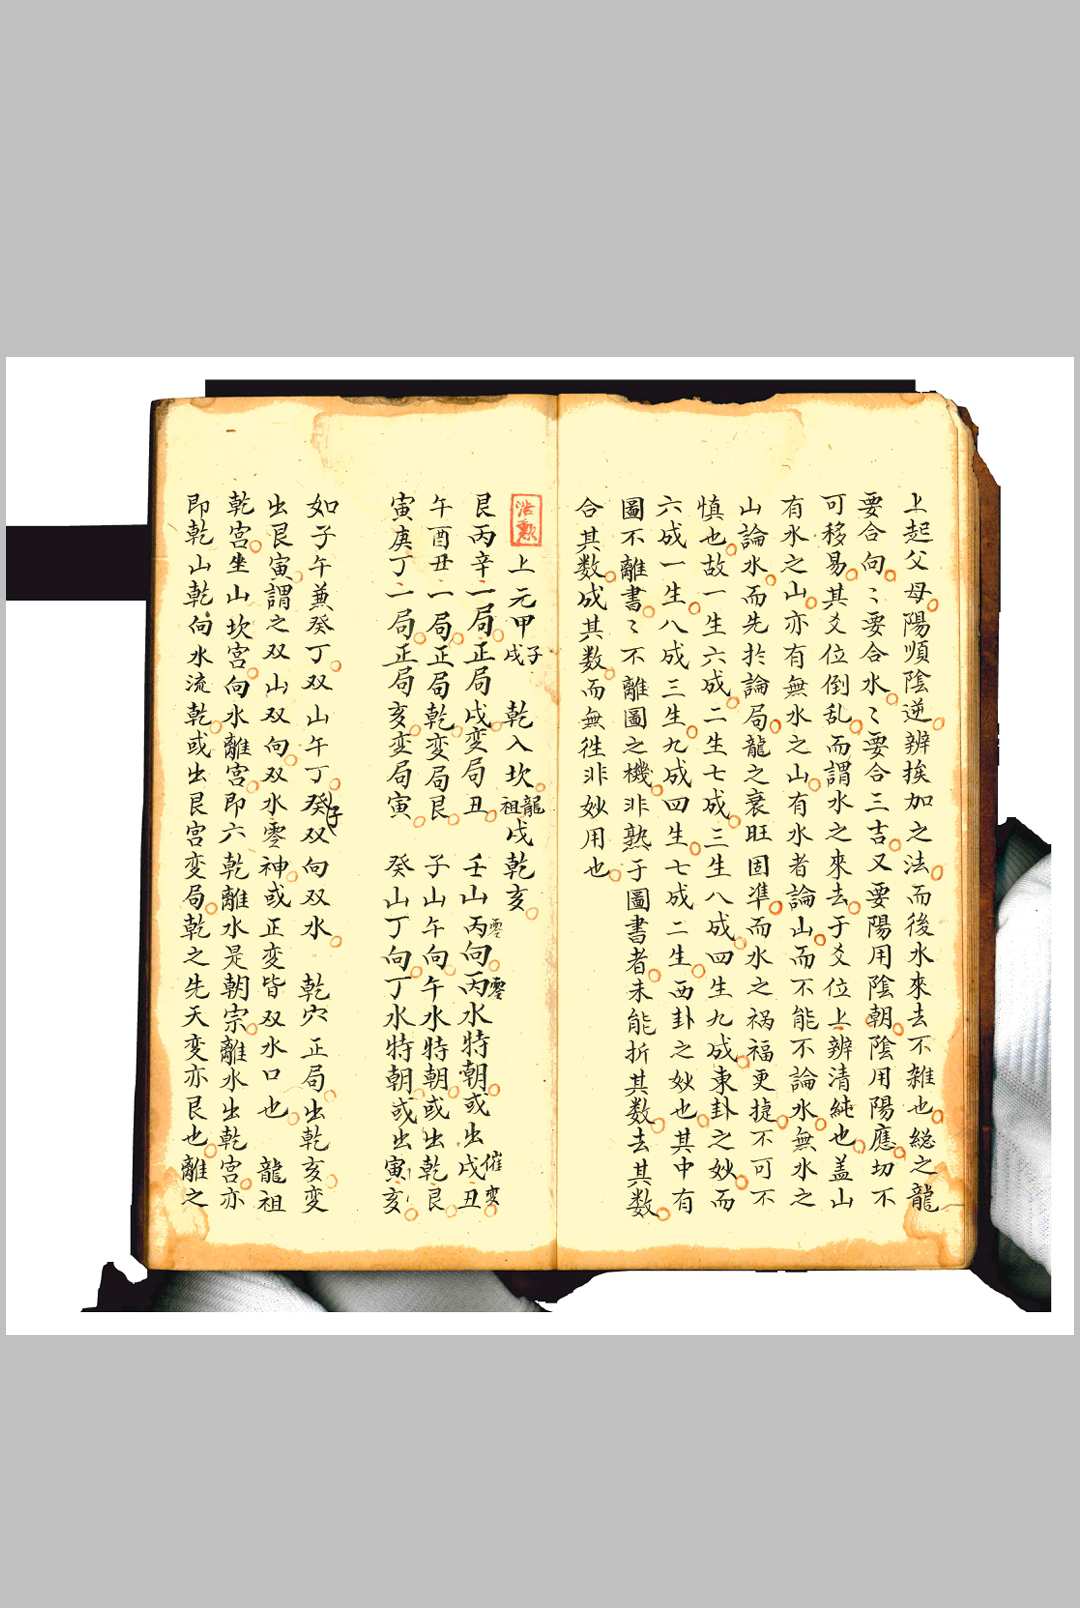 上起父母陽順陰逆辨挨加之法而後水來去不雜也総之龍
要合向〻要合水〻要合三吉又要陽用陰朝陰用陽應切不
可移易其爻位倒乱而謂水之來去于爻位上辨清純也盖山
有水之山亦有無水之山有水者論山而不能不論水無水之
山論水而先扵論局龍之衰旺固準而水之禍福更捷不可不
慎也故一生六成二生七成三生八成四生九成東卦之妙而
六成一生八成三生九成四生七成二生西卦之妙也其中有
圖不離書〻不離圖之機非熟于圖書者未能折其数去其数
合其数成其数而無徃非妙用也
上元甲子戌 乾入坎龍祖戌乾亥
艮丙辛一局正局戌変局丑 壬山丙向丙水特朝或出戌丑
零 零 催 変
午酉丑一局正局乾変局艮 子山午向午水特朝或出乾艮
寅庚丁一局正局亥変局寅 癸山丁向丁水特朝或出寅亥
如子午兼癸丁双山午丁癸子双向双水 乾穴正局出乾亥変
出艮寅謂之双山双向双水零神或正変皆双水口也 龍祖
乾宮坐山坎宮向水離宮即六乾離水是朝宗離水出乾宮亦
即乾山乾向水流乾或出艮宮変局乾之先天変亦艮也離之